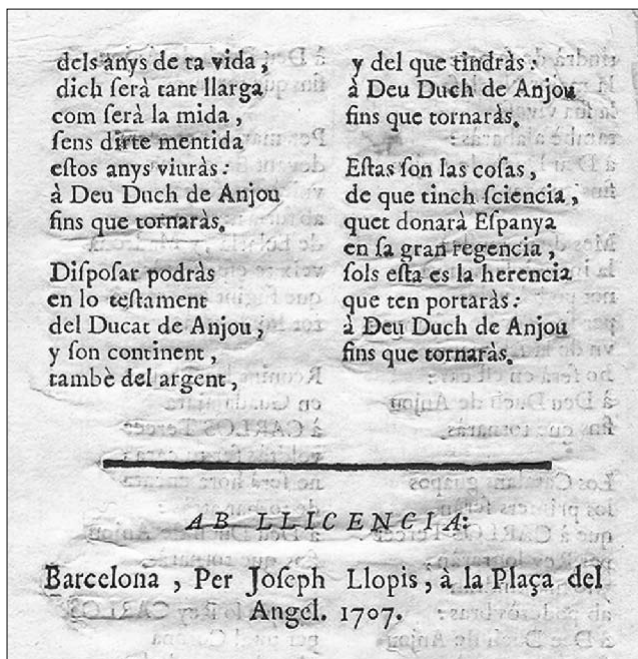 dels anys de ta vida,
dich ſerà tant llarga
com ſerà la mida,
ſens dirte mentida
eſtos anys viuràs:
à Deu Duch de Anjou
fins que tornaràs.
Diſpoſar podràs
en lo teſtament
del Ducat de Anjou,
y ſon continent,
tambè del argent,
y del que tindràs:
à Deu Duch de Anjou
fins que tornaràs.
Eſtas ſon las coſas,
de que tinch ſciencia,
quet donarà Eſpanya
en ſa gran regencia,
ſols eſta es la herencia
que ten portaràs:
à Deu Duch de Anjou
fins que tornaràs.
AB LLICENCIA:
Barcelona, Per Joſeph Llopis, à la Plaça del
Angel. 1707.